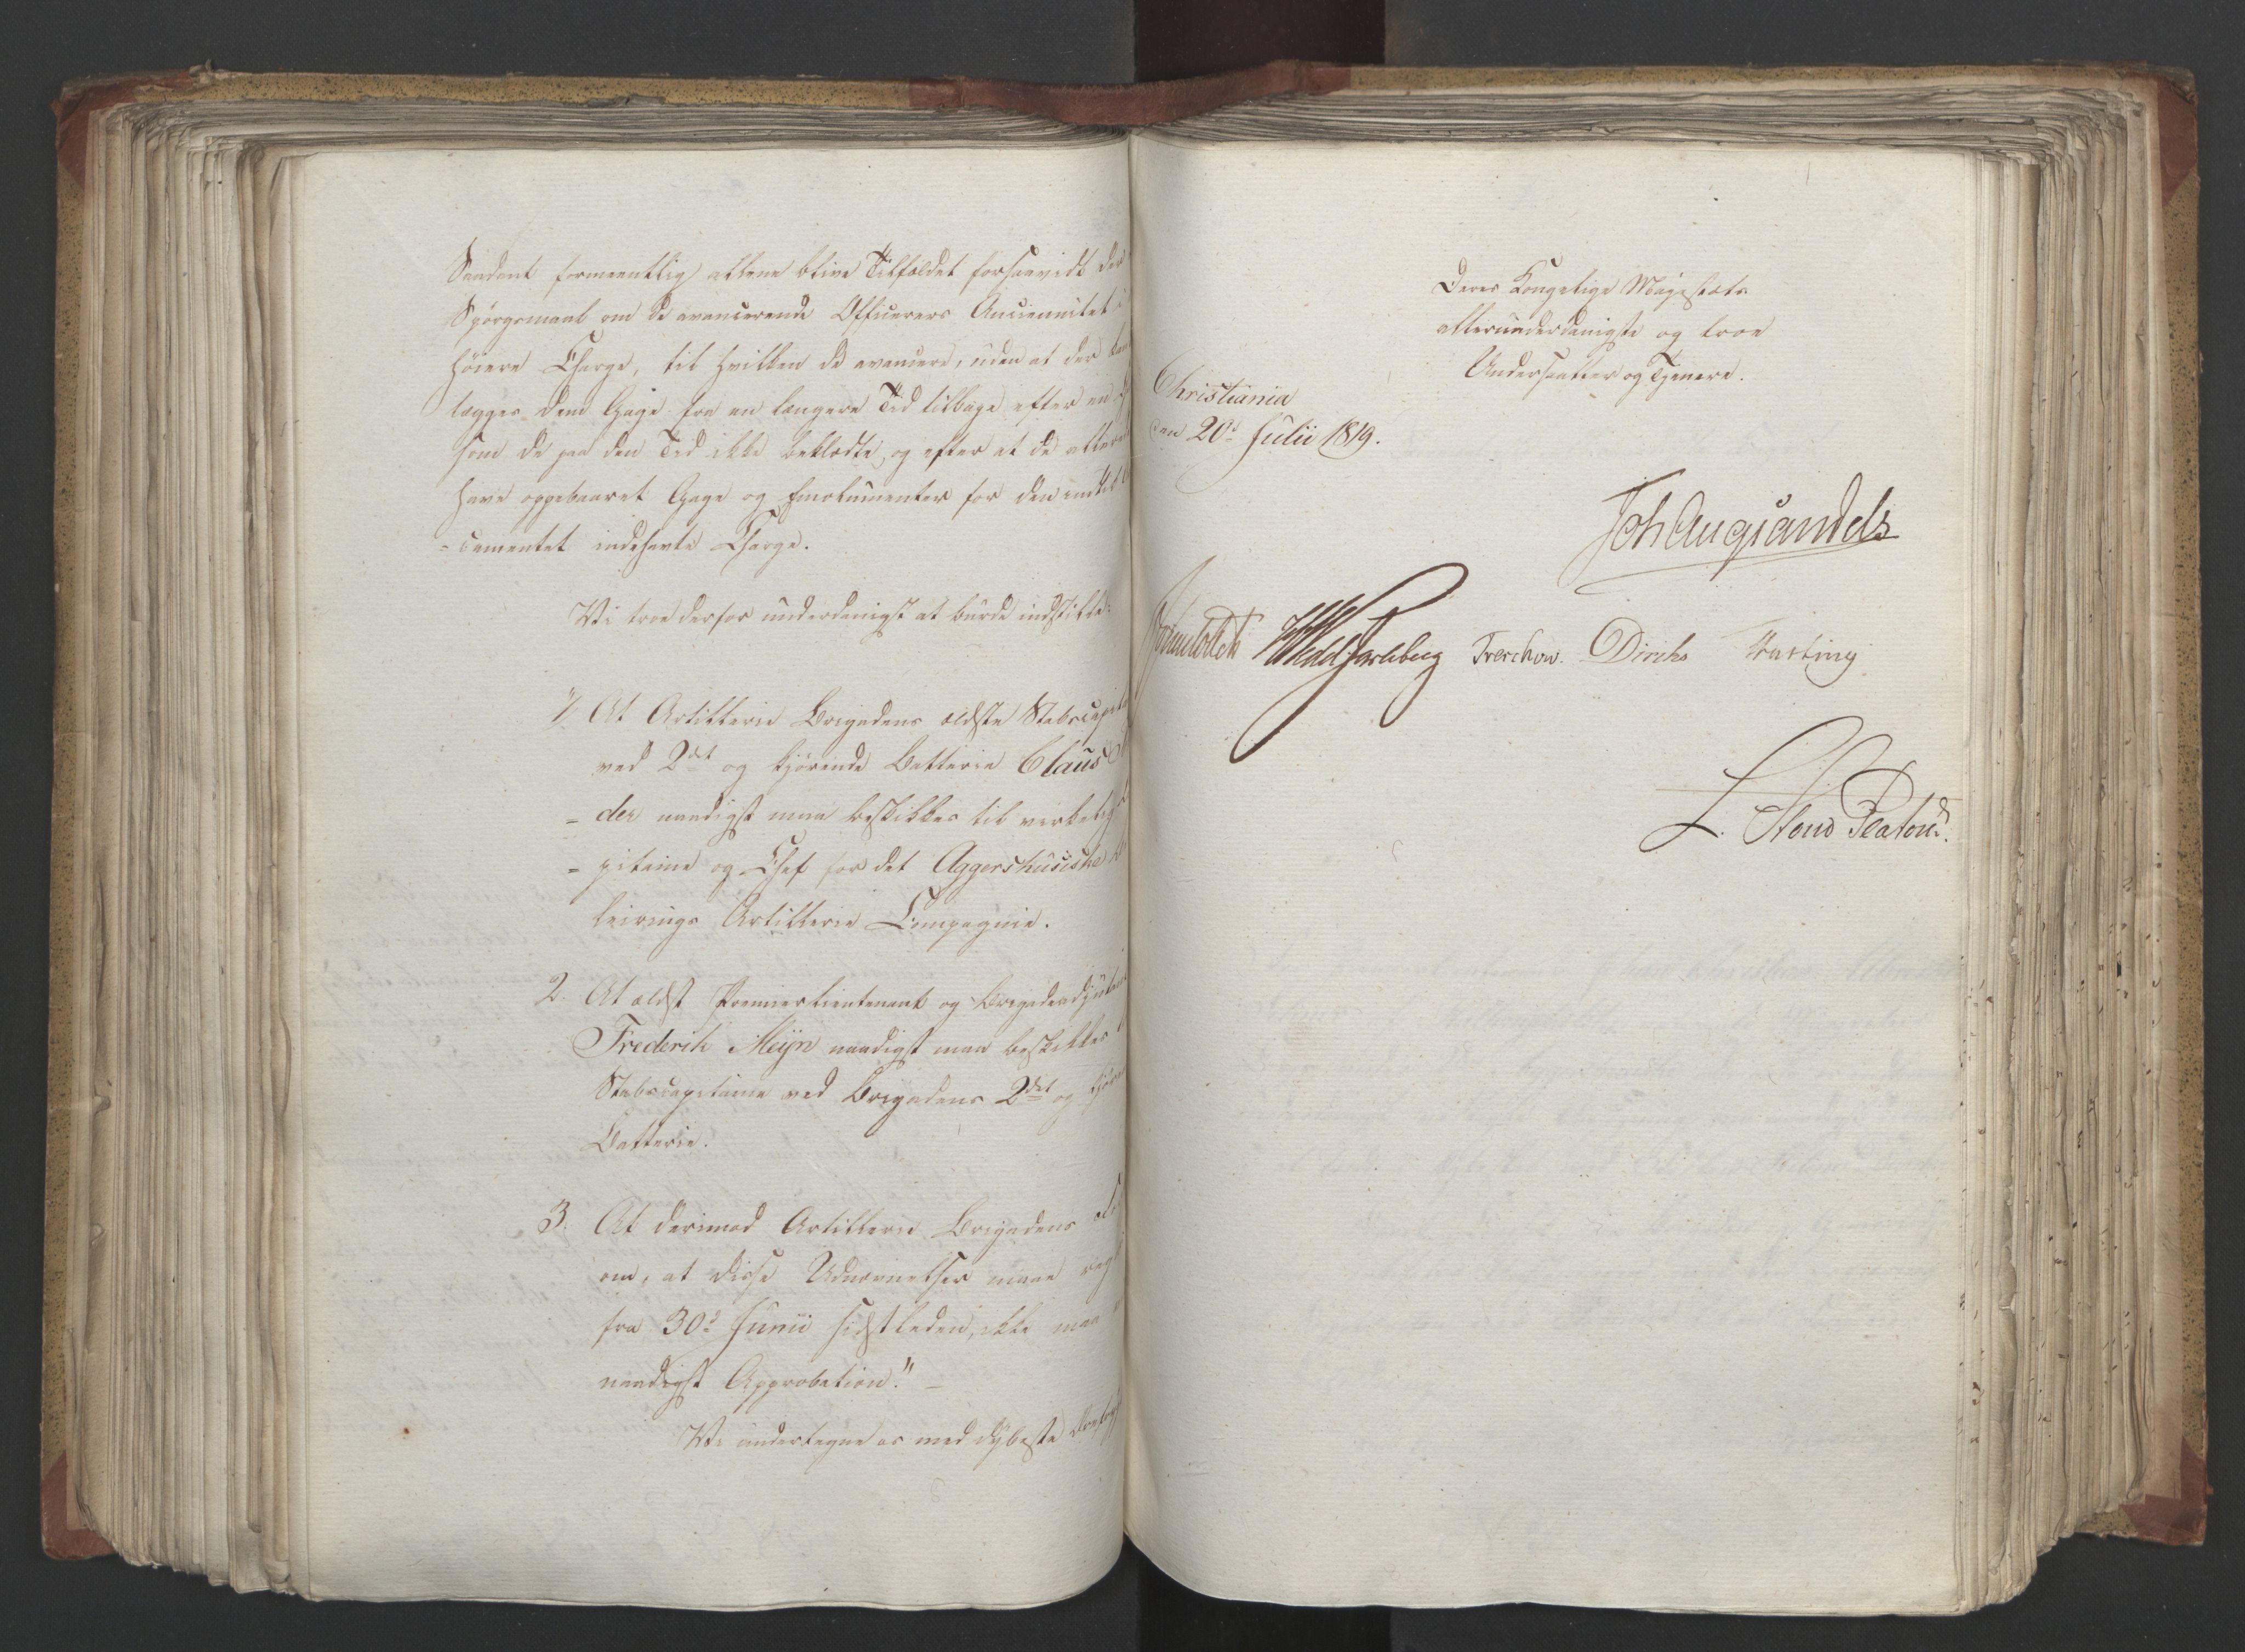 Saadant formeentlig allene blive Tilfældet forsaavidt der
Spörgsmaal om de avancerende Officerers Anciennitet i
höiere Charge, til hvilken de avancere, uden at der
lægges dem Gage fra en længere Tid tilbage efter en
som de paa den Tid ikke beklædte, og efter at de allere
have oppebaaret Gage og Emolumenter for den indtil
-cementet indehavte Charge.
Vi troe derfor underdanigst at burde indstille:
1/ At Artillerie Brigadens ældste Stabscapit
ved 2det og kjörende Batterie Claus
-der naadigst maa beskikkes til virkelig
-pitaine og Chef for det Aggershusiske
leirings Artillerie Compagnie.
2. At ældst Premierlieutenant og Brigadeadjutant
Frederik Meijn naadigst maa beskikkes
Stabscapitaine ved Brigadens 2det og kjöre
Batterie.
3. At derimod Artillerie Brigadens
om, at disse Udnævnelser maae reg
fra 30d Junii sidstleden, ikke maa
naadigst Approbation." -
Vi undertegne os med dÿbeste
Deres Kongelige Majestæts
allerunderdanigste og troe
Undersaatter og Tjenere.
Christiania
den 20d Julii 1819.
Joh Aug Sandels
Sommelhielm Wedel Jarlsberg Treschow. Diriks Fasting
L. Stoud Platou.